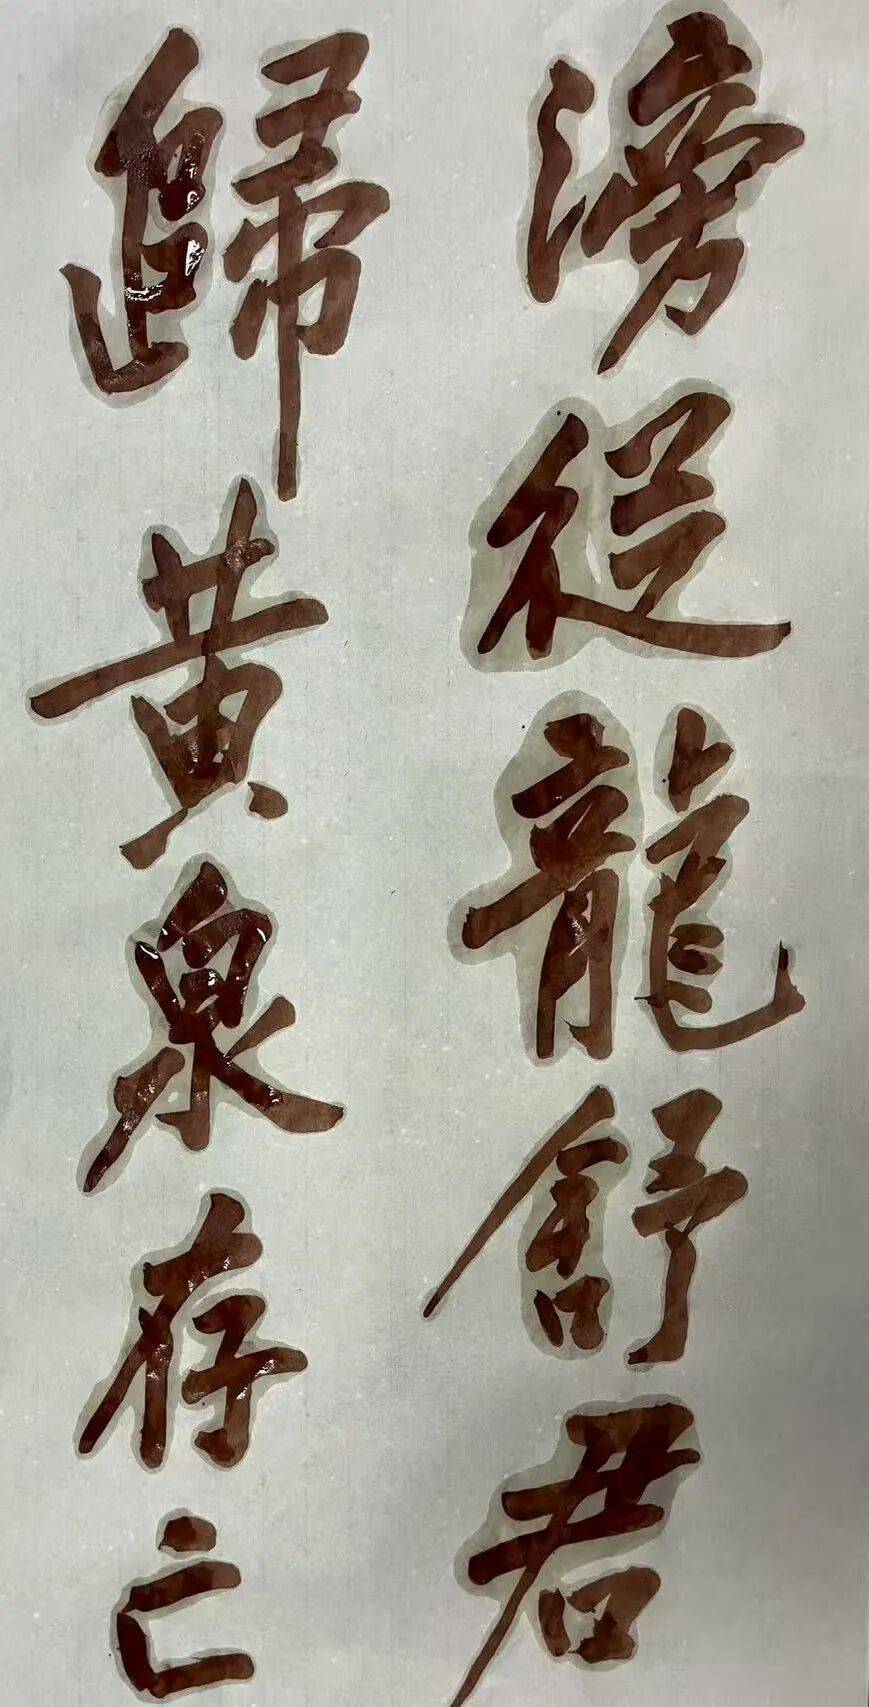 滂從龍舒君
歸黄泉存亡